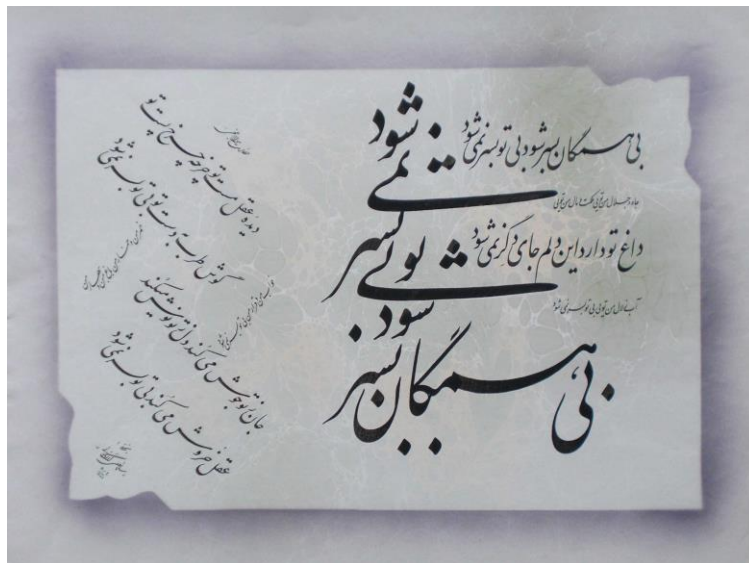 بی همگان بسر شود بی تو بسر نمی شود
بی همگان بسر شود بی تو بسر نمی شود
جاه و جلال من تویی ملکت و مال من تویی
داغ تو دارد این دلم جای دگر نمی شود
آب زلال من تویی بی تو بسر نمی شود
دیده عقل مست تو چرخه چرخ پست تو
گوش طرب به دست تو بی تو بسر نمی شود
جان ز تو جوش می کند دل ز تو نوش می کند
عقل خروش می کند بی تو بسر نمی شود